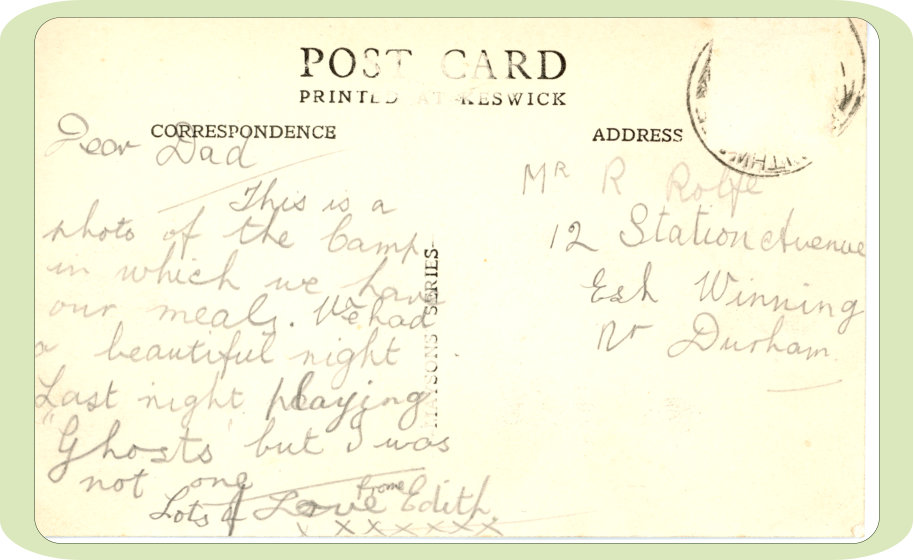 POST CARD
PRINTED AT KESWICK
CORRESPONDENCE
Dear Dad
This is a
photo of the Camp
in which we have
our meals. We had
a beautiful night
Last night playing
"Ghosts" but I was
not one
Lots of Love from Edith
x x x x x x x
SERIES
ADDRESS
Mr R Rolfe
12 Station Avenue
Esh Winning
Nr Durham